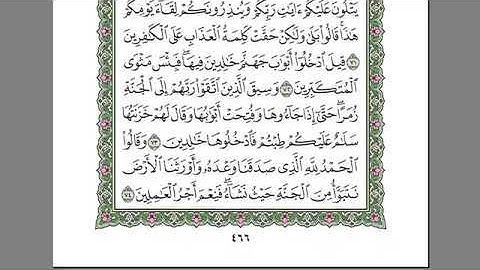 يَتْلُونَ عَلَيْكُمْ ءَايَٰتِ رَبِّكُمْ وَيُنذِرُونَكُمْ لِقَآءَ يَوْمِكُمْ
هَٰذَا قَالُوا۟ بَلَىٰ وَلَٰكِنْ حَقَّتْ كَلِمَةُ ٱلْعَذَابِ عَلَى ٱلْكَٰفِرِينَ
٧١ قِيلَ ٱدْخُلُوٓا۟ أَبْوَٰبَ جَهَنَّمَ خَٰلِدِينَ فِيهَا فَبِئْسَ مَثْوَى
ٱلْمُتَكَبِّرِينَ ٧٢ وَسِيقَ ٱلَّذِينَ ٱتَّقَوْا۟ رَبَّهُمْ إِلَى ٱلْجَنَّةِ
زُمَرًا حَتَّىٰٓ إِذَا جَآءُوهَا وَفُتِحَتْ أَبْوَٰبُهَا وَقَالَ لَهُمْ خَزَنَتُهَا
سَلَٰمٌ عَلَيْكُمْ طِبْتُمْ فَٱدْخُلُوهَا خَٰلِدِينَ ٧٣ وَقَالُوا۟
ٱلْحَمْدُ لِلَّهِ ٱلَّذِى صَدَقَنَا وَعْدَهُۥ وَأَوْرَثَنَا ٱلْأَرْضَ
نَتَبَوَّأُ مِنَ ٱلْجَنَّةِ حَيْثُ نَشَآءُ فَنِعْمَ أَجْرُ ٱلْعَٰمِلِينَ ٧٤
٤٦٦